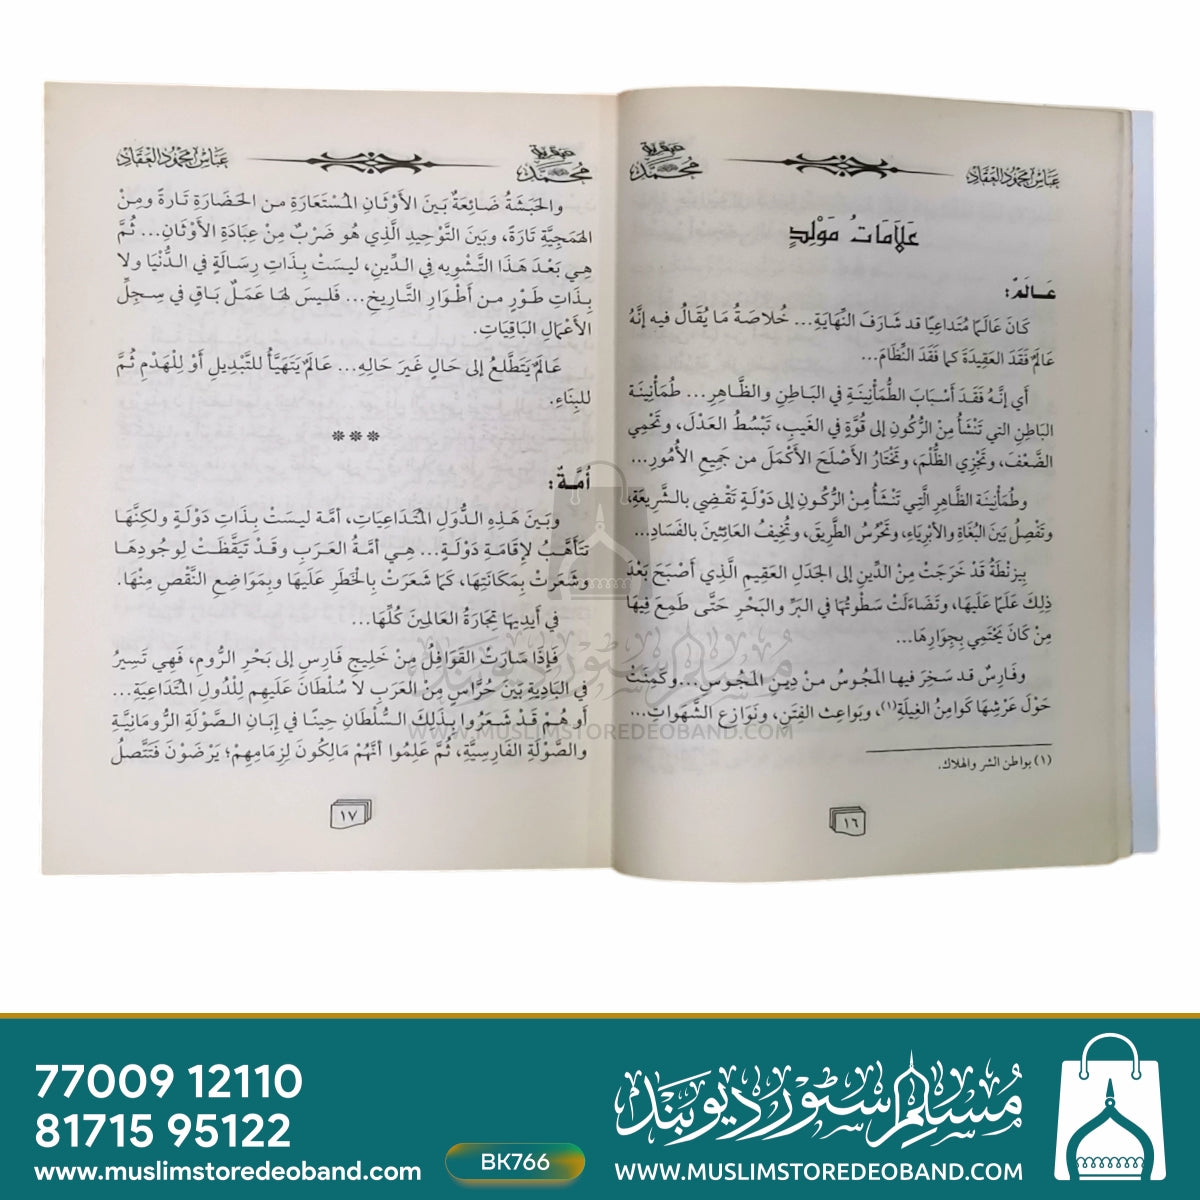 عبقرية محمد
عباس محمود العقاد
عَلَامَاتُ مَوْلِدٍ
عَـالَمٌ:
كَانَ عَالَمًا مُتَدَاعِيًا قد شَارَفَ النِّهَايَةِ... خُلَاصَةُ مَا يُقَالُ فيه إِنَّهُ
عَالَمٌ فَقَدَ العَقِيدَةَ كما فَقَدَ النِّظَامَ...
أي إِنَّهُ فَقَدَ أَسْبَابَ الطُّمَأْنِينَةِ في البَاطِنِ والظَّاهِرِ... طُمَأْنِينَة
البَاطِنِ التي تَنْشَأُ مِنْ الرُّكُونِ إلى قُوَّةٍ في الغَيبِ، تَبْسُطُ العَدْلَ، وتَحْمِي
الضَّعْفَ، وتَجْزِي الظُّلْمَ، وتَخْتَارُ الأَصْلَحَ الأَكْمَلَ من جَمِيعِ الأُمُورِ...
وطُمَأْنِينَة الظَّاهِرِ الَّتِي تَنْشَأُ مِنْ الرُّكُونِ إلى دَوْلَةٍ تَقْضِي بالشَّرِيعَةِ،
وتَفْصِلُ بَيْنَ البُغَاةِ والأَبْرِيَاءِ، وتَحْرُسُ الطَّرِيقَ، وتُخِيفُ العَائِثِينَ بالفَسَادِ...
بِيزَنْطَةُ قَدْ خَرَجَتْ مِنْ الدِّينِ إلى الجَدَلِ العَقِيمِ الَّذِي أَصْبَحَ بَعْدَ
ذلِكَ عَلَمًا عَلَيهَا، وتَضَاءَلَتْ سَطْوَتُهَا في البَرِّ والبَحْرِ حَتَّى طَمِعَ فِيهَا
مِنْ كَانَ يَحْتَمِي بِجِوَارِهَا...
وفَارِسُ قد سَخِرَ فيها المَجُوسُ منْ دِينِ المَجُوس... وكَمِنَتْ
حَوْلَ عَرْشِهَا كَوَامِنُ الغِيلَةِ(١)، وبَوَاعِث الفِتَنِ، ونَوَازِع الشَّهَوَاتِ...
(١) بواطن الشر والهلاك.
١٦
عبقرية محمد
عباس محمود العقاد
والحَبَشَةُ ضَائِعَةٌ بَينَ الأَوْثَانِ المُسْتَعَارَةِ من الحَضَارَةِ تَارَةً ومِنْ
الهَمَجِيَّةِ تَارَةً، وبَينَ التَّوْحِيدِ الَّذِي هُو ضَرْبٌ مِنْ عِبَادَةِ الأَوْثَانِ... ثُمَّ
هِي بَعْدَ هَذَا التَّشْوِيه فِي الدِّينِ، ليسَتْ بِذَاتِ رِسَالَةٍ في الدُّنْيَا ولا
بِذَاتِ طَوْرٍ من أَطْوَارِ التَّارِيخِ... فَلَيسَ لهَا عَمَلٌ بَاقِي في سِجِلِّ
الأَعْمَالِ البَاقِيَاتِ.
عَالَمٌ يَتَطَلَّعُ إلى حَالٍ غَيرَ حَالِهِ... عَالَمٌ يَتَهَيَّأُ للتَّبْدِيلِ أَوْ لِلْهَدْمِ ثُمَّ
للبِنَاءِ.
***
أُمَّـةٌ:
وبَينَ هَذِهِ الدُّوَلِ المُتَدَاعِيَاتِ، أمَّة ليسَتْ بِذَاتِ دَوْلَةٍ ولكِنَّهَا
تتَأَهَّبُ لإِقَامَةِ دَوْلَةٍ... هِي أمَّةُ العَرَبِ وقَدْ تَيَقَّظَتْ لِوجُودِهَا
وشَعَرَتْ بِمَكَانَتِهَا، كَمَا شَعَرَتْ بِالخَطَرِ عَلَيهَا وبِمَوَاضِعِ النَّقْصِ مِنْهَا.
في أَيدِيهَا تِجَارَةُ العَالمِينَ كُلِّهَا...
فَإِذَا سَارَتْ القَوَافِلُ مِنْ خَلِيجِ فَارِس إلى بَحْرِ الرُّومِ، فَهِي تَسِيرُ
في البَادِيةِ بَيْنَ حُرَّاسٍ مِنْ العَرَبِ لا سُلْطَانَ عَلَيهِم لِلْدُولِ المُتَدَاعِيَةِ...
أو هُمْ قَدْ شَعَرُوا بِذَلِكَ السُّلْطَانِ حِينًا في إبَانِ الصَّوْلَةِ الرُّومَانِيَّةِ
والصَّوْلَةِ الفَارِسِيَّةِ، ثُمَّ عَلِمُوا أنَّهُمْ مَالِكُونَ لِزِمَامِهِمْ؛ يَرْضَوْنَ فَتَتَّصلُ
١٧
مسلم سٹور دیوبند
WWW.MUSLIMSTOREDEOBAND.COM
77009 12110
81715 95122
www.muslimstoredeoband.com
BK766
مسلم سٹور دیوبند
WWW.MUSLIMSTOREDEOBAND.COM